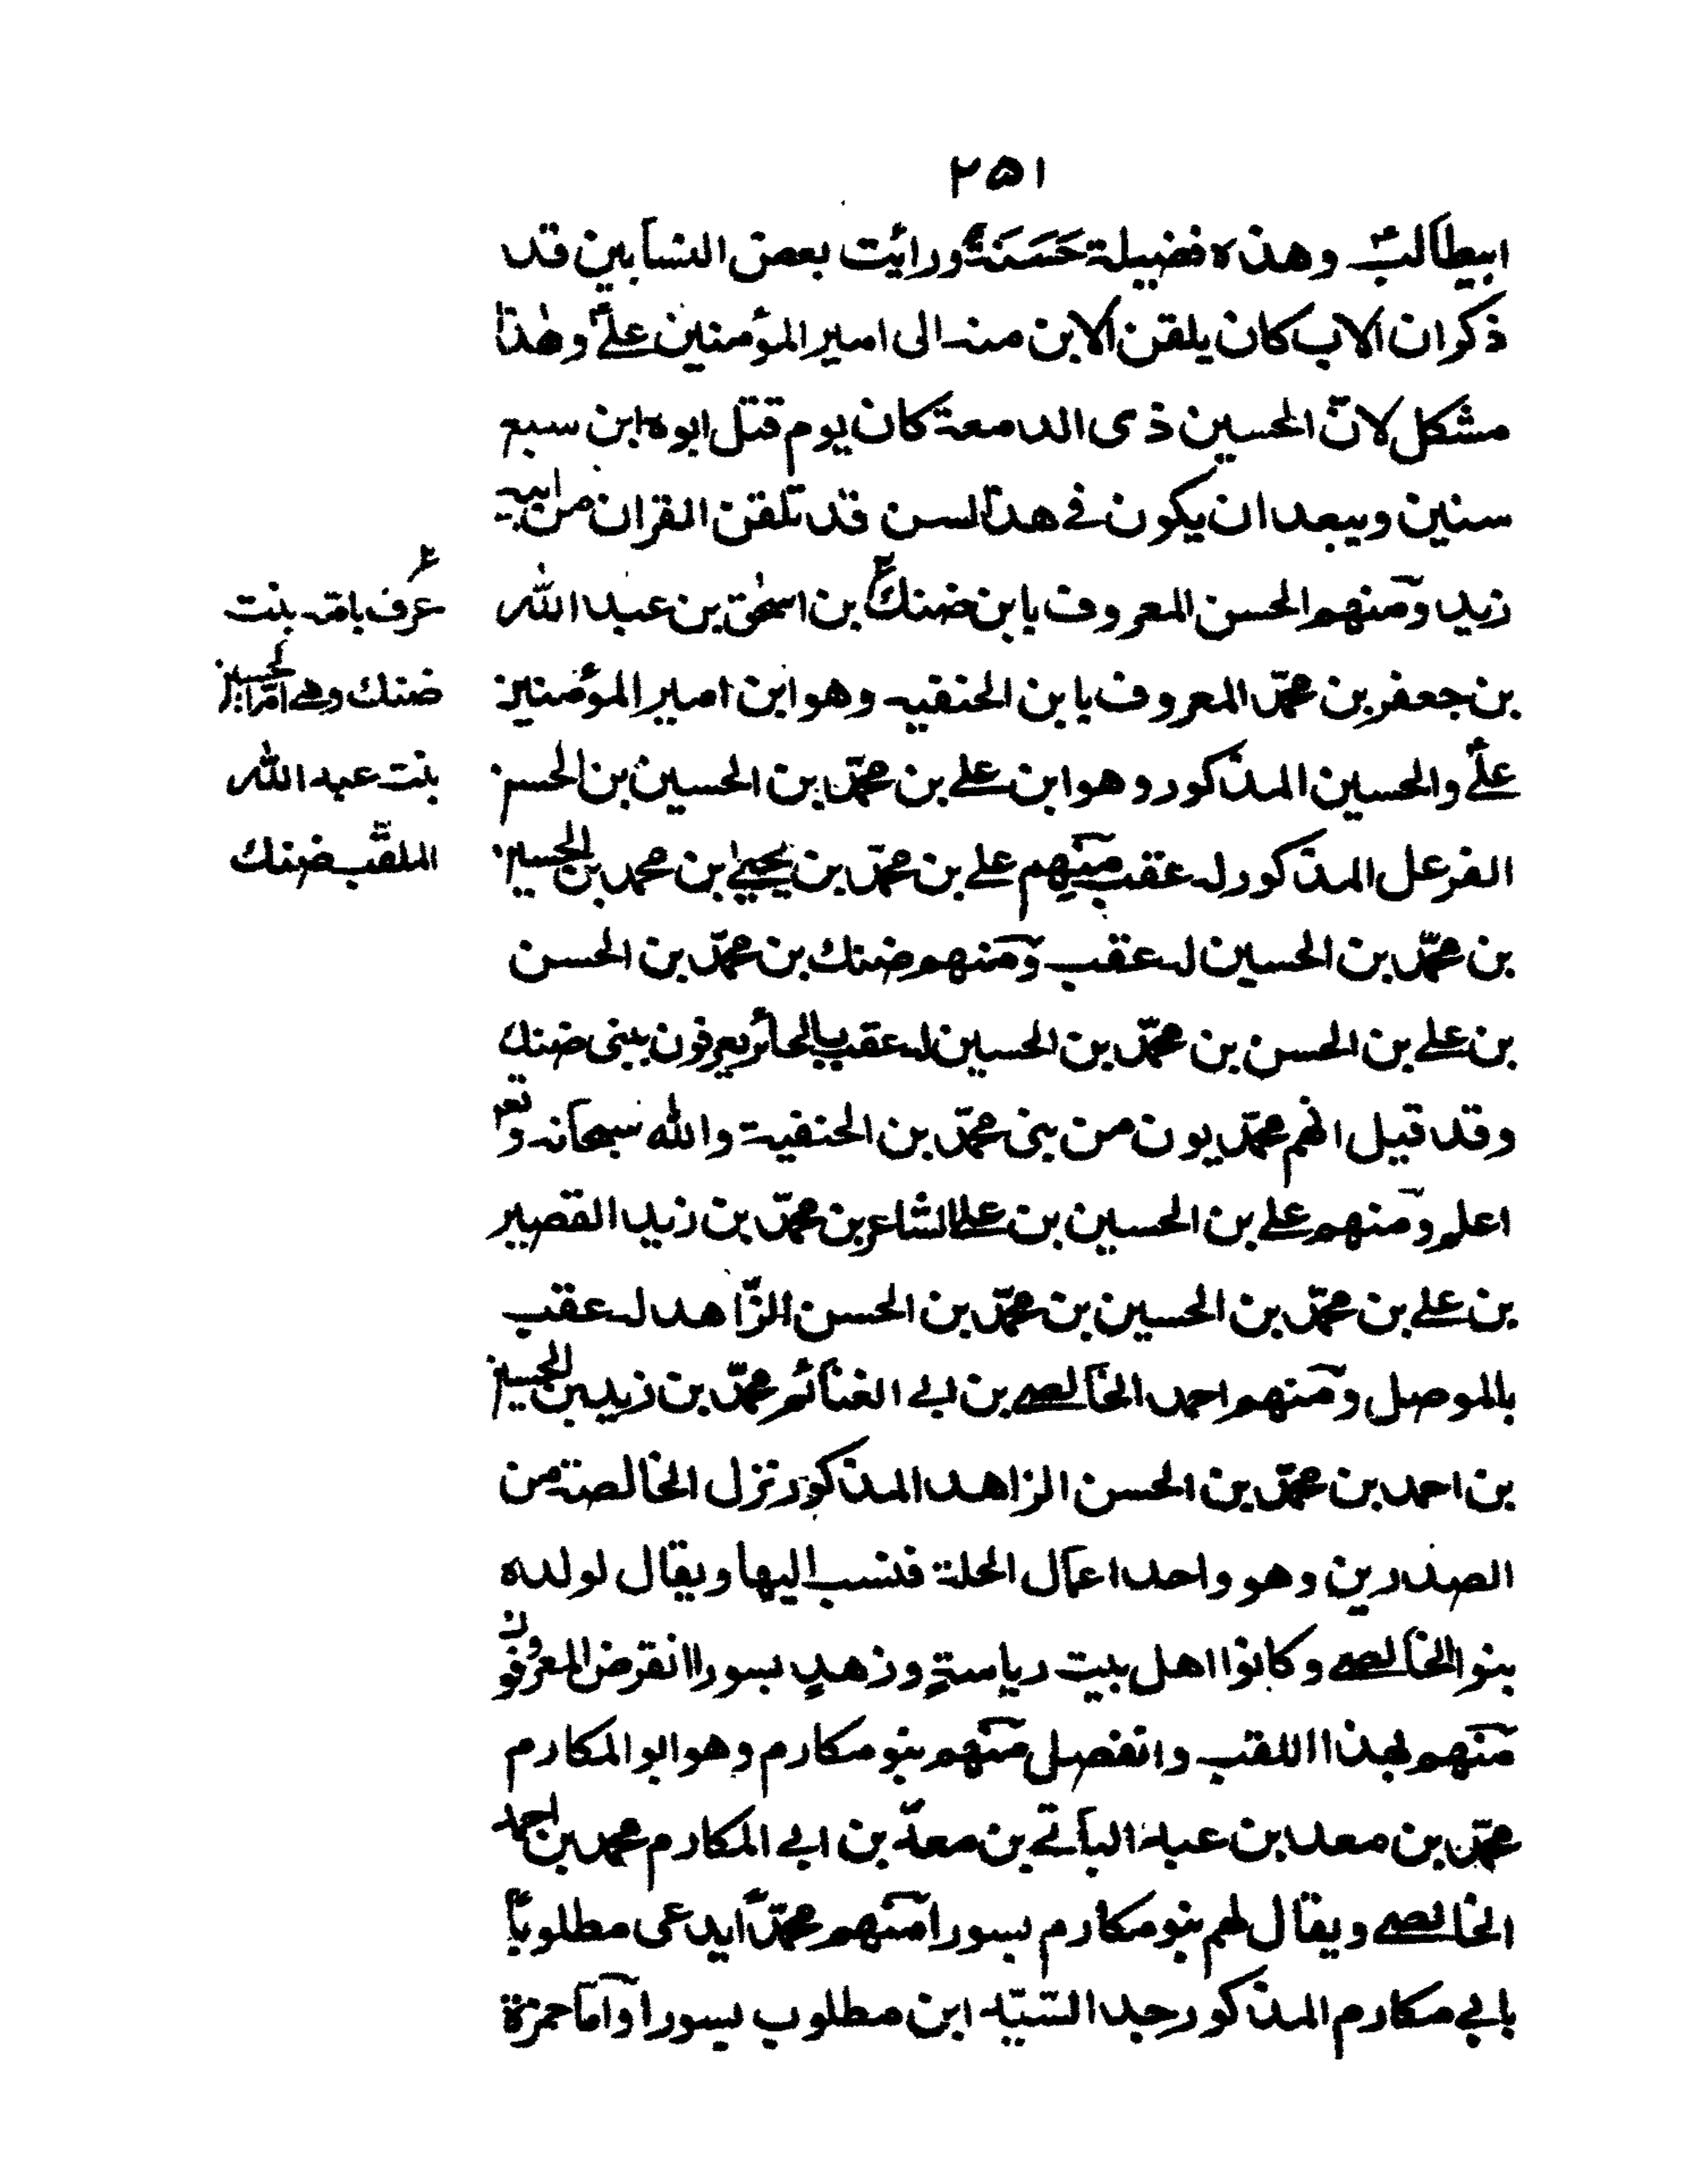 ۲۵۱
ابيطالب وهذه فضيلة حَسَنَة ورائت بعض النسابين قد
ذكر ان الاب كان يلقن الابن منه الى امير المؤمنين علىؑ وهذا
مشكل لانّ الحسين ذى الدمعة كان يوم قتل ابوه ابن سبع
سنين ويبعد ان يكون في هذا السن قد تلقن القران من ابيه
زيد ومنهم الحسن المعروف بابن ضنك بن اسحٰق بن عبد الله
بن جعفر بن محمّد المعروف بابن الحنفيه وهو ابن امير المؤمنين
علىؑ والحسين المذكور وهو ابن علے بن محمّد بن الحسين بن الحسن
الفرعل المذكور له عقب منهم علے بن محمّد بن يحيٰى بن محمد بن الحسين
بن محمّد بن الحسين له عقب ومنهم ضنك بن محمّد بن الحسن
بن علے بن الحسن بن محمّد بن الحسين له عقب بالحائر يعرفون ببنى ضنك
وقد قيل انهم محمّديون من بنى محمّد بن الحنفية والله سبحانه وتعٰ
اعلم ومنهم علے بن الحسين بن علے الشاعر بن محمّد بن زيد القصير
بن علے بن محمّد بن الحسين بن محمّد بن الحسن الزّاهد له عقب
بالموصل ومنهم احمد الخالصے بن ابے الغنائم محمّد بن زيد بن الحسين
بن احمد بن محمّد بن الحسن الزاهد المذكور نزل الخالصة من
الصدرين وهو واحد اعمال الحلة فنسب اليها ويقال لولده
بنو الخالصے وكانوا اهل بيت رياسةٍ وزهدٍ بسورا انقرض المعروفون
منهم بهذا اللقب وانفصل منهم بنو مكارم وهو ابو المكارم
محمّد بن معد ابن عبد الباقے بن معدّ بن ابے المكارم محمد بن احمد
الخالصے ويقال لهم بنو مكارم بسورا منهم محمّدًا يدعى مطلوبًا
بابے مكارم المذكور جد السّيّد ابن مطلوب بسورا وامّا حمزة
عرف بامّه بنت
ضنك وهے امّ الحسين
بنت عبد الله
الملقّب ضنك